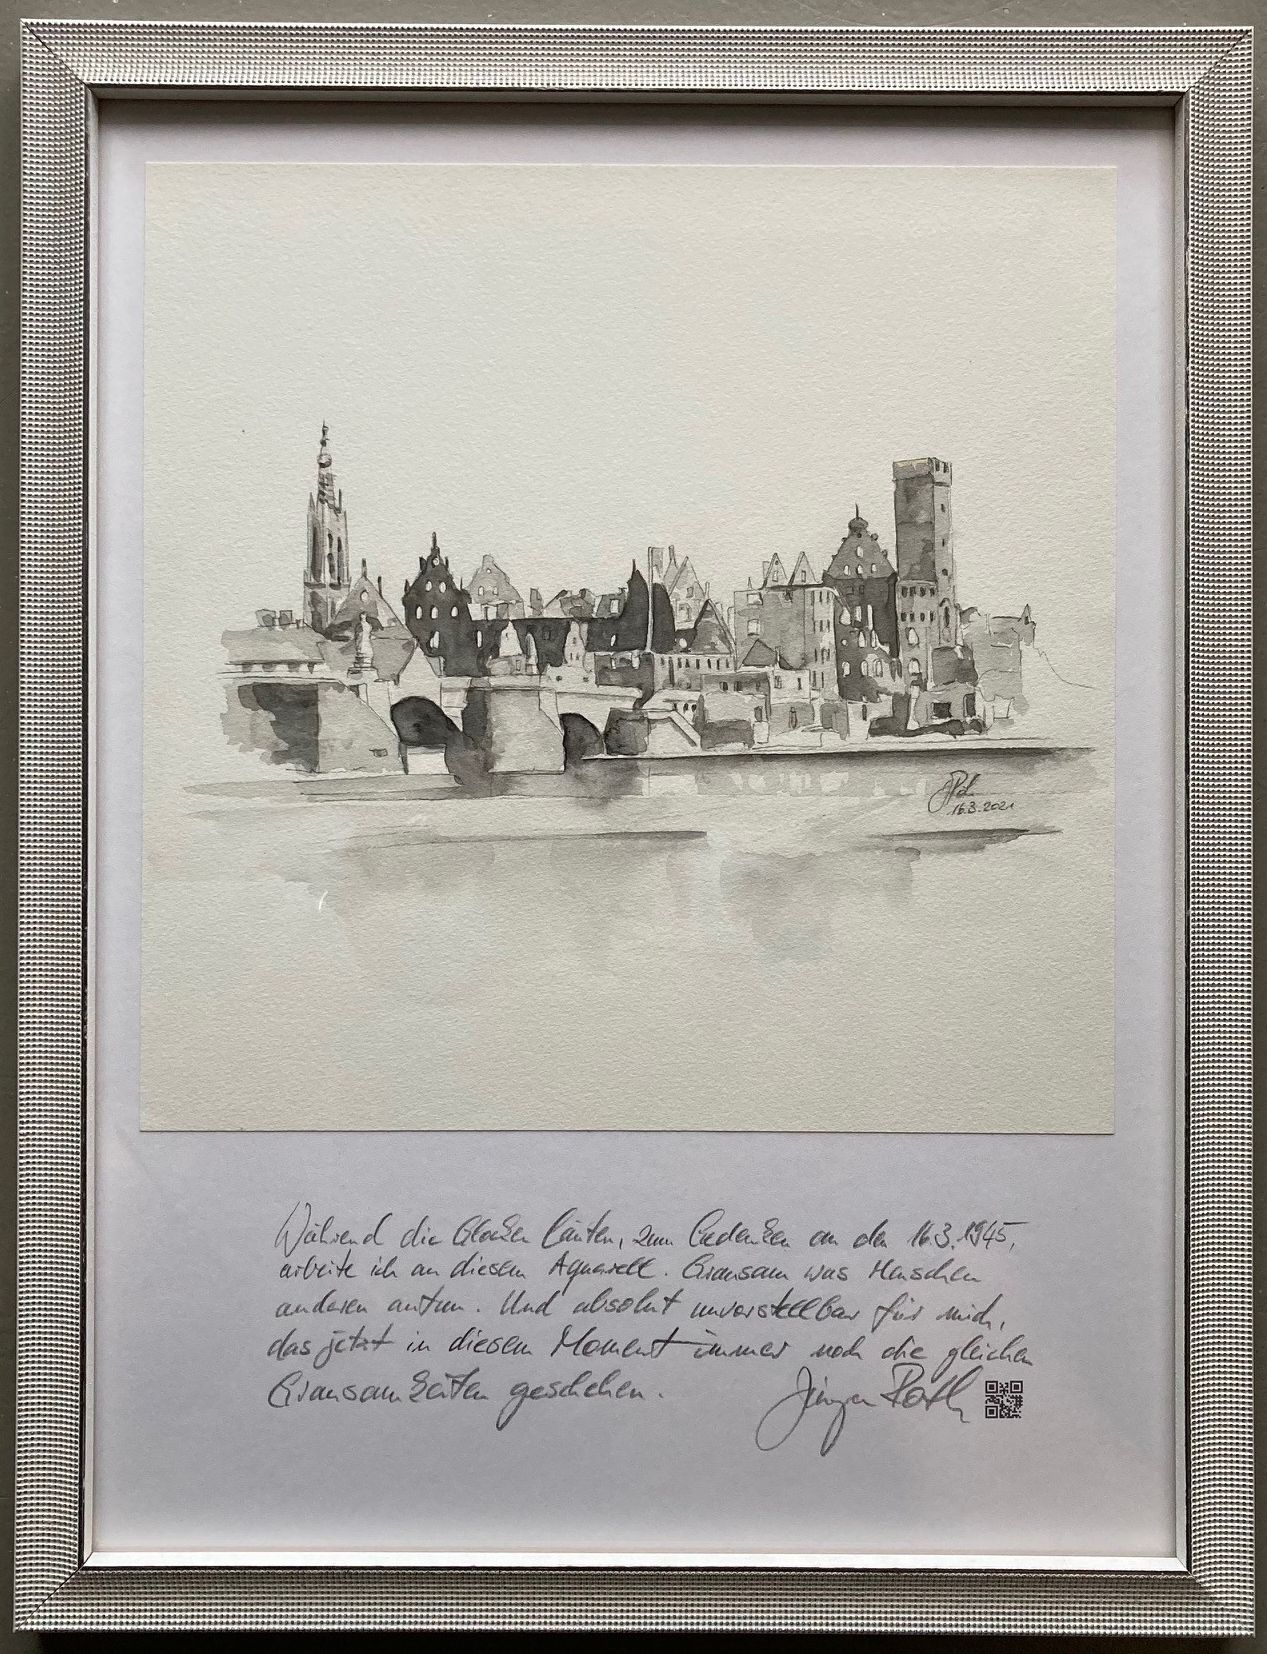 16.3.2021
Während die Glocken läuten, zum Gedenken an den 16.3.1945,
arbeite ich an diesem Aquarell. Grausam was Menschen
anderen antun. Und absolut unvorstellbar für mich,
das jetzt in diesem Moment immer noch die gleichen
Grausamkeiten geschehen. Jürgen Roth